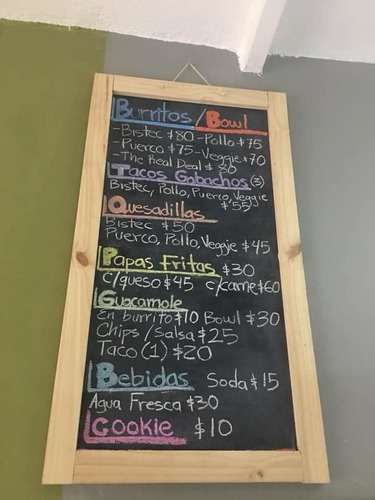 Burritos/Bowl
-Bistec $80-Pollo $75
-Puerco $75-Veggie $70
-The Real Deal $90
Tacos Gabachos (3)
Bistec, Pollo, Puerco, Veggie
$55
Quesadillas
Bistec $50
Puerco, Pollo, Veggie $45
Papas Fritas $30
c/queso $45 c/carne $60
Guacamole
En burrito $10 Bowl $30
Chips/Salsa $25
Taco (1) $20
Bebidas Soda $15
Agua Fresca $30
Cookie $10